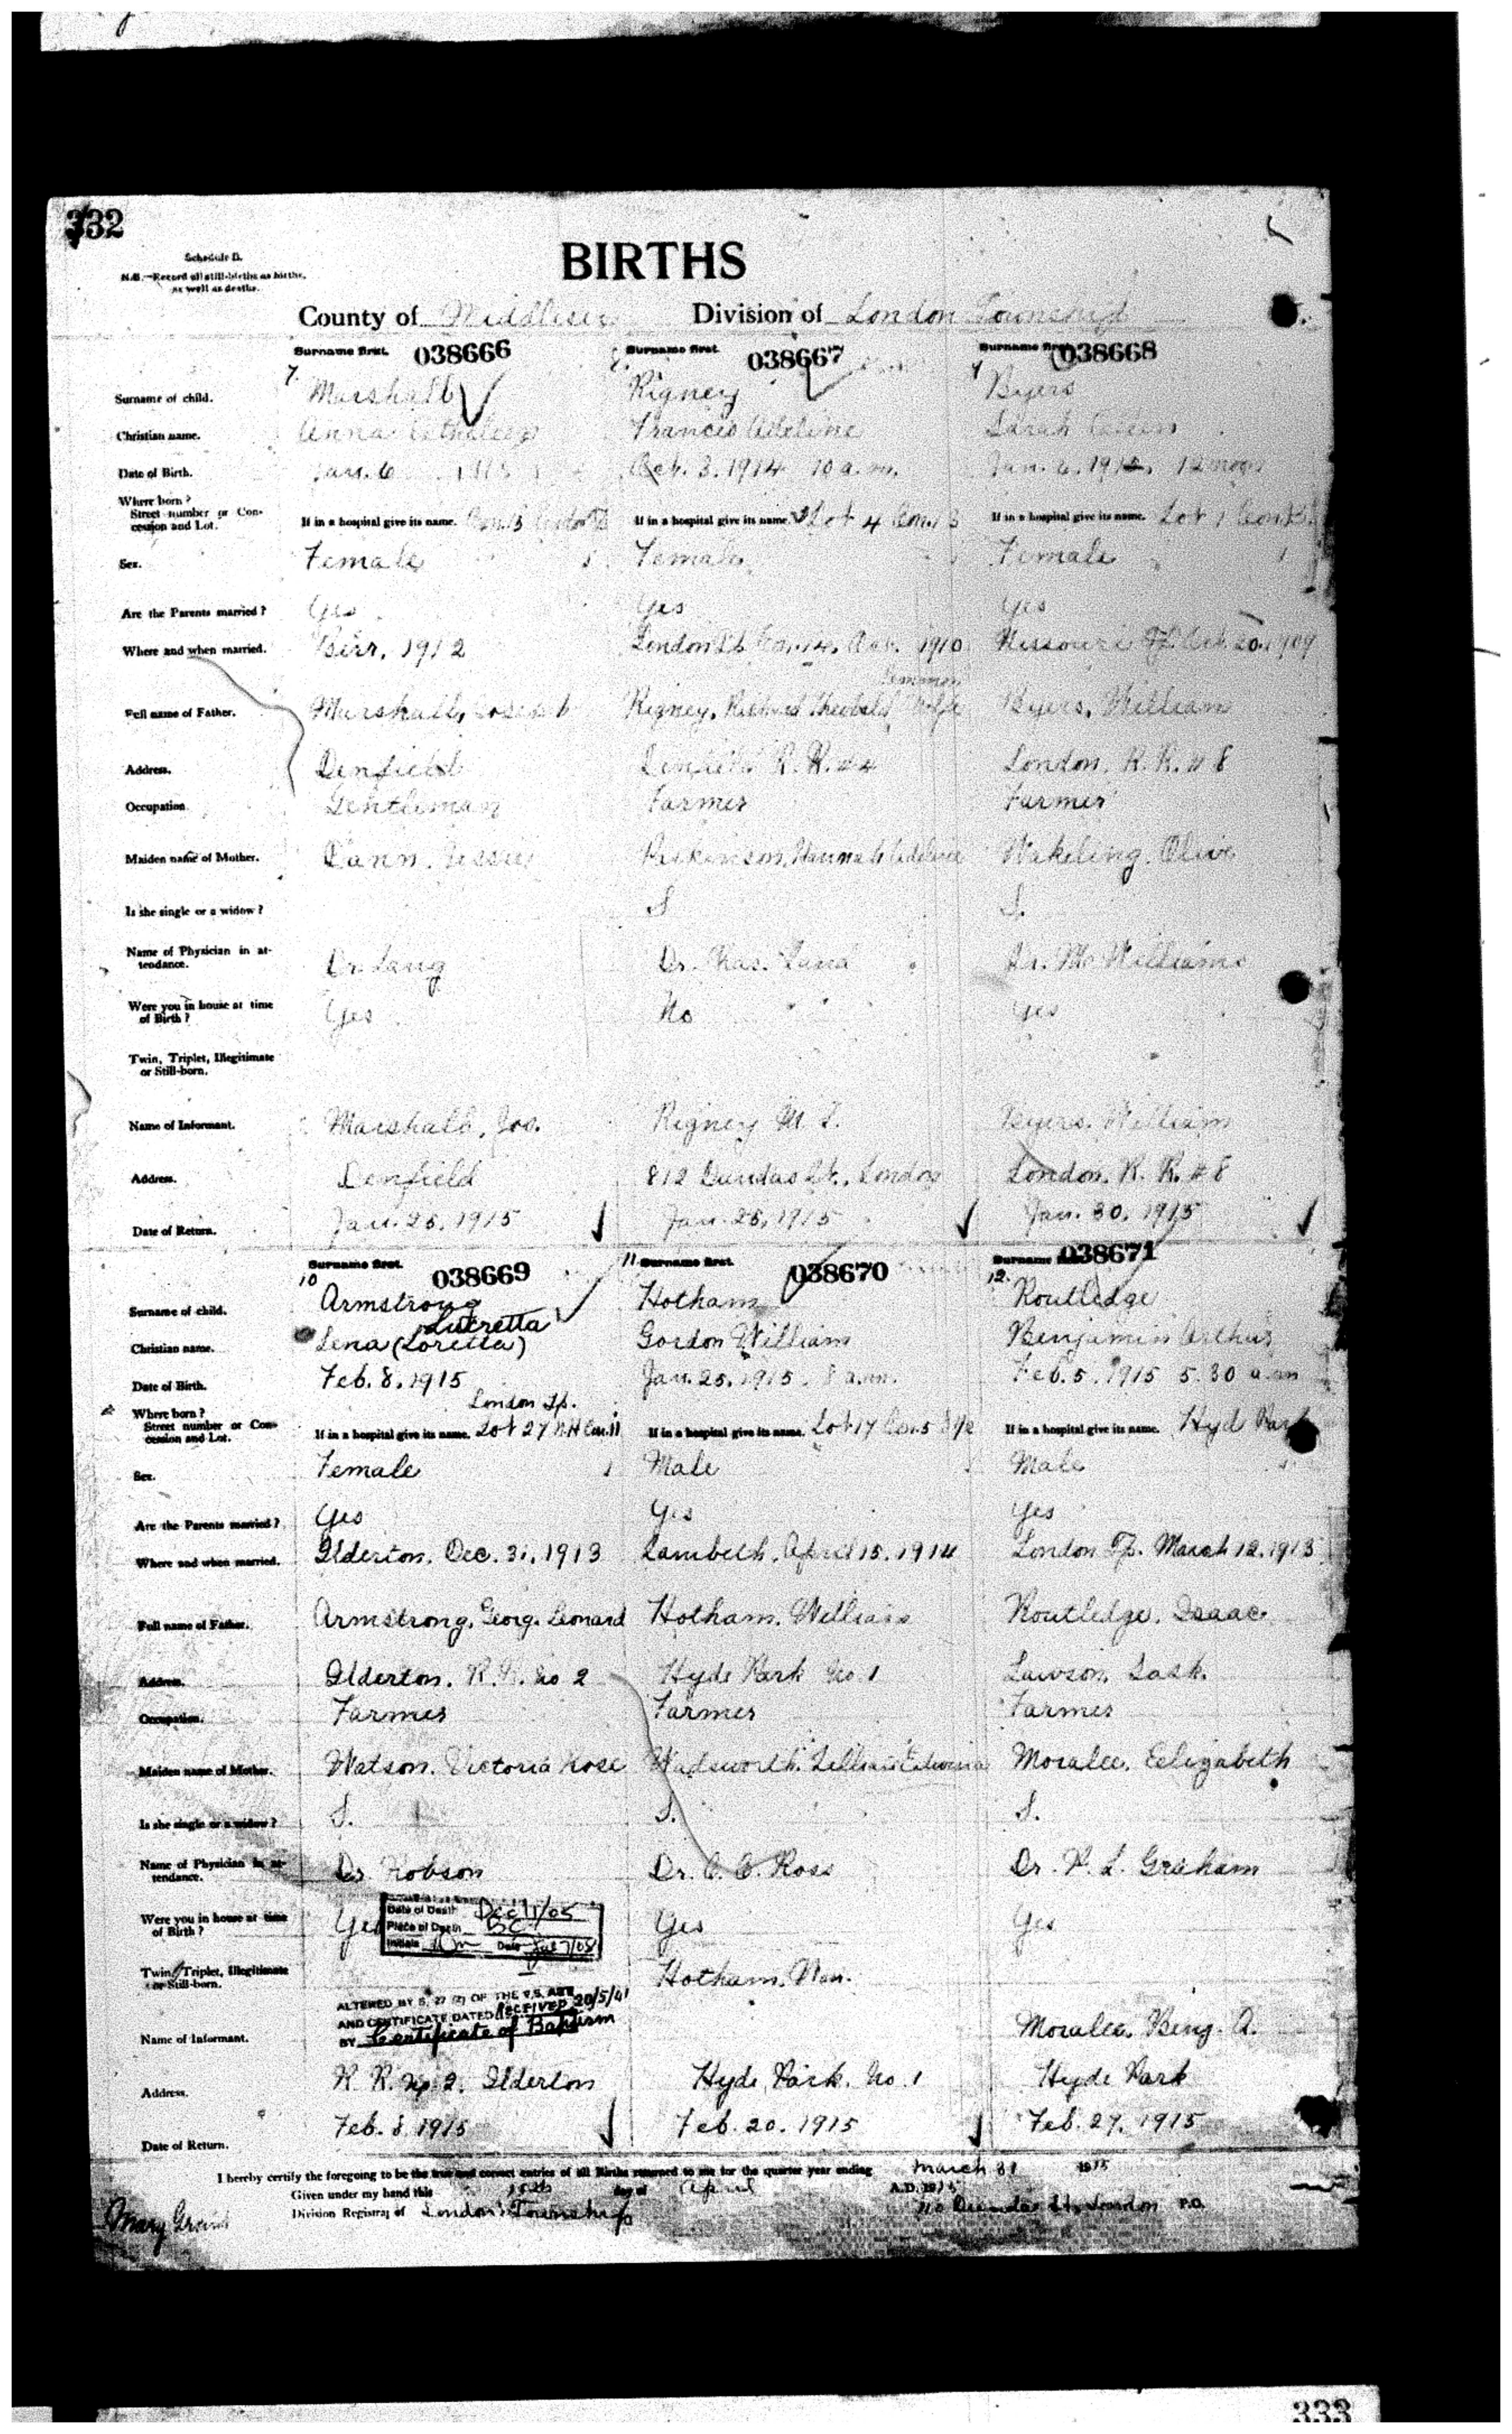 332
Schedule B.
N.B.—Record all still-births as births, as well as deaths.
BIRTHS
County of Middlesex Division of London Township
Surname first. 038666 Surname first. 038667 Surname first. 038668
7. 9
Surname of child. Marshall Rigney Byers
Christian name. Anna Frances Adeline Sarah
Date of Birth. Jan. 6 1915 Oct. 3. 1914 10 a.m. Jan. 6. 1915. 12 noon
Where born? Street number or Concession and Lot. If in a hospital give its name. If in a hospital give its name. Lot 4 Con. 13 If in a hospital give its name. Lot 1 Con.
Sex. Female Female Female
Are the Parents married? Yes Yes Yes
Where and when married. Birr, 1912 London Con. 14. 1910 Oct. 20. 1909
Full name of Father. Marshall, Joseph Rigney, Richard Theobald Wolfe Byers, William
Address. Denfield R. R. #4 London. R. R. # 8
Occupation. Gentleman Farmer Farmer
Maiden name of Mother. Jessie Parkinson, Hannah Wakeling, Olive
Is she single or a widow? S S.
Name of Physician in attendance. Dr. Lang Dr. Chas. Dr. McWilliams
Were you in house at time of Birth? Yes No Yes
Twin, Triplet, Illegitimate or Still-born.
Name of Informant. Marshall, Jos. Rigney M. T. Byers, William
Address. Denfield 812 Dundas St., London London, R. R. # 8
Date of Return. Jan. 25, 1915 Jan. 25, 1915 Jan. 30, 1915
Surname first. 038669 Surname first. 038670 Surname 038671
10 11 12.
Surname of child. Armstrong Hotham Routledge
Lucretta
Christian name. Lena (Loretta) Gordon William Benjamin Arthur
Date of Birth. Feb. 8, 1915 Jan. 25, 1915. 8 a.m. Feb. 5. 1915 5.30 a.m
London Tp.
Where born? Street number or Concession and Lot. If in a hospital give its name. Lot 27 N.H Con. 11 If in a hospital give its name. Lot 17 Con. 5 S 1/2 If in a hospital give its name. Hyd Park
Sex. Female Male Male
Are the Parents married? Yes Yes Yes
Where and when married. Ilderton, Dec. 31, 1913 Lambeth, April 15, 1914 London Tp. March 12, 1913
Full name of Father. Armstrong, Georg. Leonard Hotham, William Routledge, Isaac
Address. Ilderton. R. R. No 2 Hyde Park No 1 Lawson, Sask.
Occupation. Farmer Farmer Farmer
Maiden name of Mother. Watson, Victoria Rose Wadsworth, Lillian Edwina Moralee, Eelizabeth
Is she single or a widow? S. S. S.
Name of Physician in attendance. Dr. Hobson Dr. C. C. Ross Dr. R. L. Graham
Date of Death Dec 11/05
Were you in house at time of Birth? Yes Yes Yes
Place of Death BC
Initials Date Jul 7/08
Twin, Triplet, Illegitimate or Still-born. Hotham, Wm.
ALTERED BY S. 27 (2) OF THE V.S. ACT
AND CERTIFICATE DATED RECEIVED 20/5/41
BY Certificate of Baptism
Name of Informant. Moralee, Benj. A.
Address. R. R. No. 2. Ilderton Hyde Park, No. 1 Hyde Park
Date of Return. Feb. 8 1915 Feb. 20. 1915 Feb. 27, 1915
I hereby certify the foregoing to be the true and correct entries of all Births returned to me for the quarter year ending March 31 1915
Given under my hand this 15th day of April A.D. 1915
Mary Division Registrar of London Township Dundas St., London P.O.
333